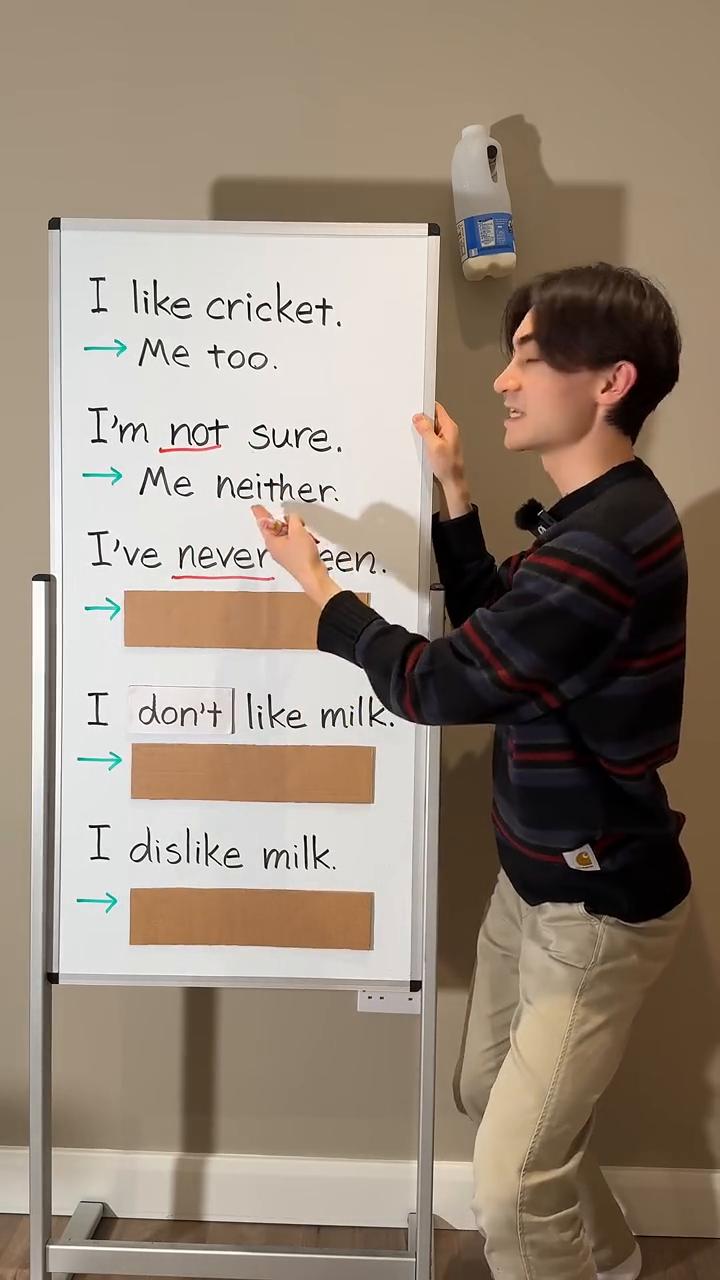 I like cricket.
→ Me too.
I'm not sure.
→ Me neither.
I've never
→
I don't like milk.
→
I dislike milk.
→